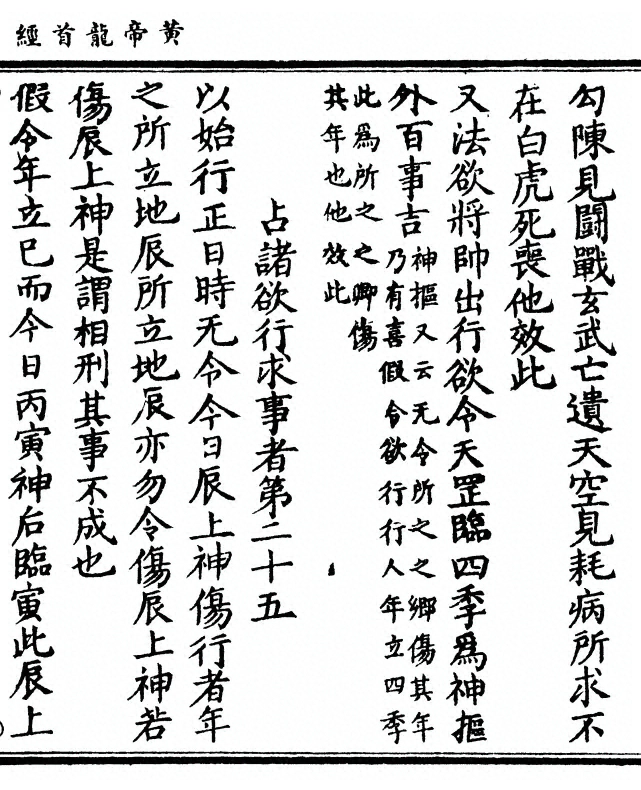 黄帝龍首經
勾陳見鬭戰玄武亡遺天空見耗病所求不
在白虎死喪他效此
又法欲將帥出行欲令天罡臨四季爲神摳
外百事吉
神摳又云无令所之之鄉傷其年
乃有喜假令欲行行人年立四季
此爲所之之卿傷
其年也他效此
占諸欲行求事者第二十五
以始行正日時无令今日辰上神傷行者年
之所立地辰所立地辰亦勿令傷辰上神若
傷辰上神是謂相刑其事不成也
假令年立巳而今日丙寅神后臨寅此辰上